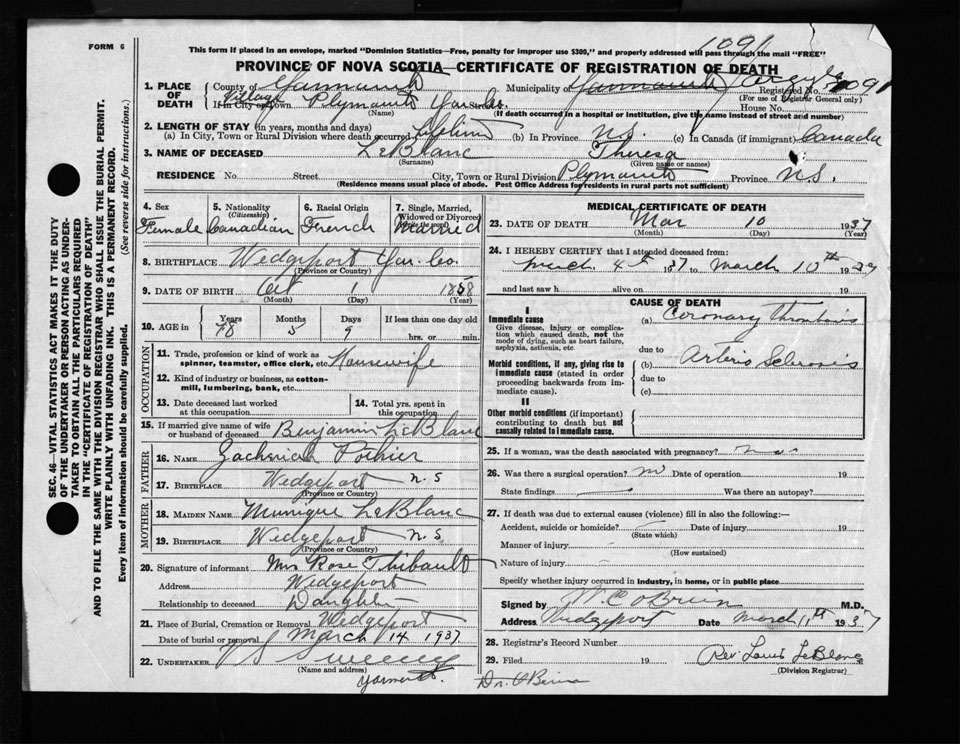 FORM 6
1091
This form if placed in an envelope, marked "Dominion Statistics—Free, penalty for improper use $300," and properly addressed will pass through the mail "FREE"
PROVINCE OF NOVA SCOTIA—CERTIFICATE OF REGISTRATION OF DEATH
1. PLACE OF DEATH County of Yarmouth Municipality of Yarmouth Argyle Registered No. 1091
(For use of Registrar General only)
Village If in City or Town Plymouth Yar. Co. House No.
(Name) (If death occurred in a hospital or institution, give the name instead of street and number)
2. LENGTH OF STAY (in years, months and days)
(a) In City, Town or Rural Division where death occurred Lifetime (b) In Province N.S. (c) In Canada (if immigrant) Canada
3. NAME OF DECEASED LeBlanc Theresa
(Surname) (Given name or names)
RESIDENCE No. Street City, Town or Rural Division Plymouth Province N.S.
(Residence means usual place of abode. Post Office Address for residents in rural parts not sufficient)
SEC. 46—VITAL STATISTICS ACT MAKES IT THE DUTY
OF THE UNDERTAKER OR PERSON ACTING AS UNDER-
TAKER TO OBTAIN ALL THE PARTICULARS REQUIRED
IN THE "CERTIFICATE OF REGISTRATION OF DEATH"
AND TO FILE THE SAME WITH THE DIVISION REGISTRAR WHO SHALL ISSUE THE BURIAL PERMIT.
WRITE PLAINLY WITH UNFADING INK. THIS IS A PERMANENT RECORD.
Every item of information should be carefully supplied. (See reverse side for instructions.)
4. Sex 5. Nationality (Citizenship) 6. Racial Origin 7. Single, Married, Widowed or Divorced
Female Canadian French Married
8. BIRTHPLACE Wedgeport Yar. Co.
(Province or Country)
9. DATE OF BIRTH Oct 1 1858
(Month) (Day) (Year)
10. AGE in Years Months Days If less than one day old
78 5 9 hrs. or min.
OCCUPATION
11. Trade, profession or kind of work as spinner, teamster, office clerk, etc. Housewife
12. Kind of industry or business, as cotton-mill, lumbering, bank, etc.
13. Date deceased last worked at this occupation 14. Total yrs. spent in this occupation
15. If married give name of wife or husband of deceased Benjamin LeBlanc
FATHER
16. NAME Pothier
17. BIRTHPLACE Wedgeport N.S
(Province or Country)
MOTHER
18. MAIDEN NAME Munique LeBlanc
19. BIRTHPLACE Wedgeport N.S.
(Province or Country)
20. Signature of informant Mrs Rose Thibault
Address Wedgeport
Relationship to deceased Daughter
21. Place of Burial, Cremation or Removal Wedgeport
Date of burial or removal March 14 1937
22. UNDERTAKER V S Sweeny
(Name and address)
Yarmouth
MEDICAL CERTIFICATE OF DEATH
23. DATE OF DEATH Mar 10 1937
(Month) (Day) (Year)
24. I HEREBY CERTIFY that I attended deceased from:
March 4th 1937 to March 10th 1937
and last saw h alive on 19
CAUSE OF DEATH
I
Immediate cause (a) Coronary Thrombosis
Give disease, injury or complication which caused death, not the mode of dying, such as heart failure, asphyxia, asthenia, etc.
due to
Morbid conditions, if any, giving rise to immediate cause (stated in order proceeding backwards from immediate cause). (b) Arterio Sclerosis
due to
(c)
II
Other morbid conditions (if important) contributing to death but not causally related to immediate cause.
25. If a woman, was the death associated with pregnancy?
26. Was there a surgical operation? no Date of operation 19
State findings Was there an autopsy?
27. If death was due to external causes (violence) fill in also the following:—
Accident, suicide or homicide? Date of injury 19
(State which)
Manner of injury
(How sustained)
Nature of injury
Specify whether injury occurred in industry, in home, or in public place
Signed by W. C. O'Brien M.D.
Address Wedgeport Date March 11th 1937
28. Registrar's Record Number
29. Filed 19 Rev. Louis LeBlanc
(Division Registrar)
Dr. O'Brien